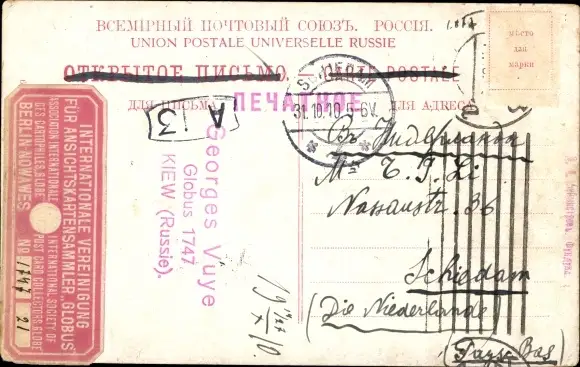 ВСЕМІРНЫЙ ПОЧТОВЫЙ СОЮЗЪ. РОССІЯ.
UNION POSTALE UNIVERSELLE RUSSIE
ОТКРЫТОЕ ПИСЬМО. — CARTE POSTALE
ДЛЯ ПИСЬМА
ДЛЯ АДРЕСА
ПЕЧАТНОЕ
мѣсто
для
марки
SCHIEDAM
31.10.10 5-6V.
A 13
Georges Vuye
Globus 1747
KIEW (Russie).
INTERNATIONALE VEREINIGUNG
FÜR ANSICHTSKARTENSAMMLER „GLOBUS"
ASSOCIATION INTERNATIONALE
DES CARTOPHILES GLOBE
INTERNATIONAL SOCIETY OF
POST CARD COLLECTORS GLOBE
BERLIN-NOWAWES
No 1747
21
Nassaustr. 36
Schiedam
(Die Niederlande)
(Pays-Bas)